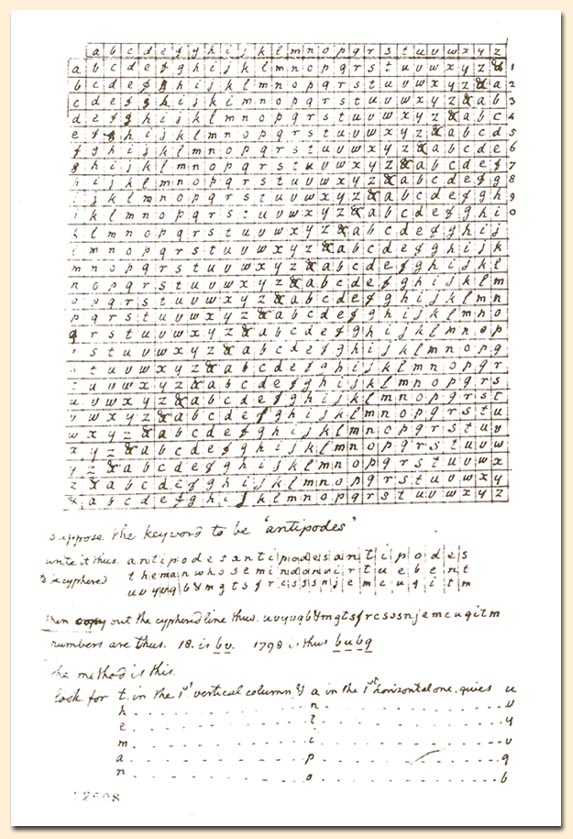 a b c d e f g h i j k l m n o p q r s t u v w x y z
a b c d e f g h i j k l m n o p q r s t u v w x y z & 1
b c d e f g h i j k l m n o p q r s t u v w x y z & a 2
c d e f g h i j k l m n o p q r s t u v w x y z & a b 3
d e f g h i j k l m n o p q r s t u v w x y z & a b c 4
e f g h i j k l m n o p q r s t u v w x y z & a b c d 5
f g h i j k l m n o p q r s t u v w x y z & a b c d e 6
g h i j k l m n o p q r s t u v w x y z & a b c d e f 7
h i j k l m n o p q r s t u v w x y z & a b c d e f g 8
i j k l m n o p q r s t u v w x y z & a b c d e f g h 9
j k l m n o p q r s t u v w x y z & a b c d e f g h i 0
k l m n o p q r s t u v w x y z & a b c d e f g h i j
l m n o p q r s t u v w x y z & a b c d e f g h i j k
m n o p q r s t u v w x y z & a b c d e f g h i j k l
n o p q r s t u v w x y z & a b c d e f g h i j k l m
o p q r s t u v w x y z & a b c d e f g h i j k l m n
p q r s t u v w x y z & a b c d e f g h i j k l m n o
q r s t u v w x y z & a b c d e f g h i j k l m n o p
r s t u v w x y z & a b c d e f g h i j k l m n o p q
s t u v w x y z & a b c d e f g h i j k l m n o p q r
t u v w x y z & a b c d e f g h i j k l m n o p q r s
u v w x y z & a b c d e f g h i j k l m n o p q r s t
v w x y z & a b c d e f g h i j k l m n o p q r s t u
w x y z & a b c d e f g h i j k l m n o p q r s t u v
x y z & a b c d e f g h i j k l m n o p q r s t u v w
y z & a b c d e f g h i j k l m n o p q r s t u v w x
z & a b c d e f g h i j k l m n o p q r s t u v w x y
& a b c d e f g h i j k l m n o p q r s t u v w x y z
suppose the keyword to be 'antipodes'
write it thus. a n t i p o d e s a n t i p o d e s a n t i p o d e s
to be cyphered t h e m a n w h o s e m i n d o n v i r t u e b e n t
u v y u q b & m g t s f r c s s s n j e m c u q i t m
then copy out the cyphered line thus. uvyuqb&mgtsfrcsssnjemcuqitm
numbers are thus. 18. is bu. 1798 is thus bubq
the method is this.
look for t. in the 1st vertical column & a in the 1st horizontal one. gives u
h . . . n . . . v
e . . . t . . . y
m . . . i . . . v
a . . . p . . . q
n . . . o . . . b